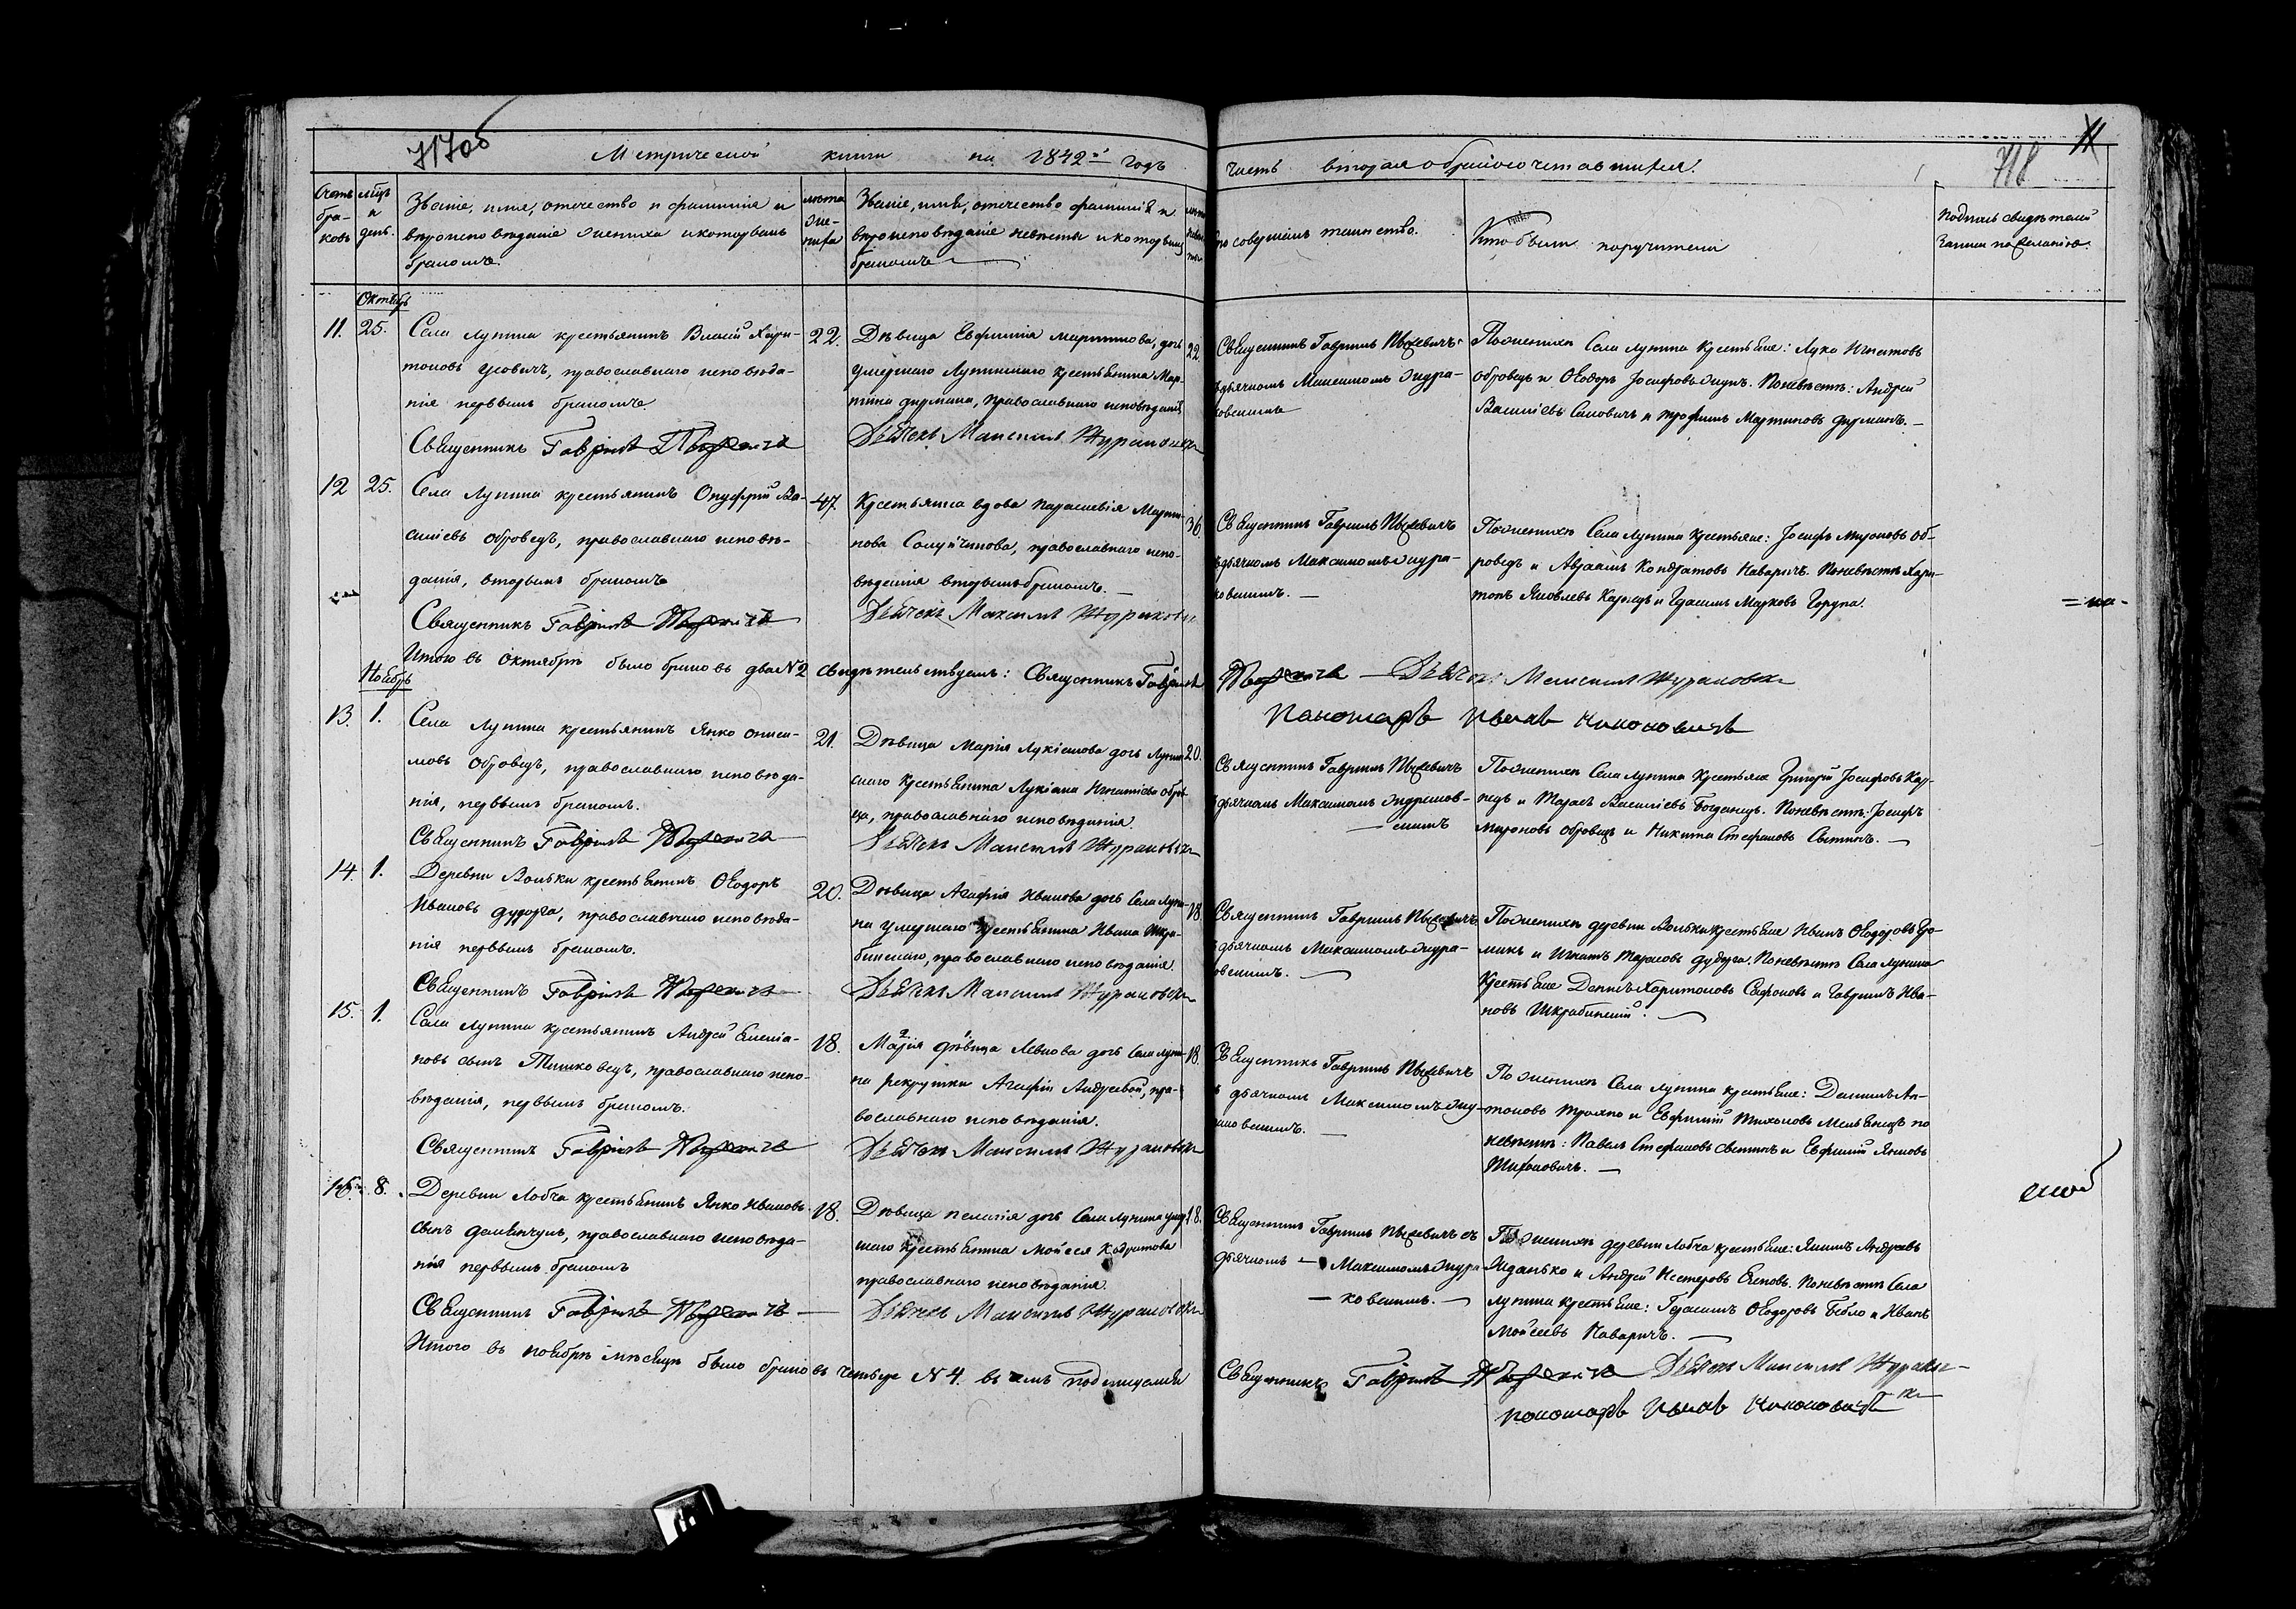 717об
Метрической книги на 1842й годъ
часть вторая о бракосочетавшихся.
718
11
Счетъ браковъ
мѣцъ и день.
Званіе, имя, отечество и фамилія и
вѣроисповѣданіе жениха и которымъ
бракомъ.
лѣта жениха
Званіе, имя, отечество фамилія и
вѣроисповѣданіе невѣсты и которымъ
бракомъ
лѣта невѣсты
Кто совершалъ таинство.
Кто были поручители
Подпись свидѣтелей
записи по желанію.
Октябрь
11. 25.
Села Лунина крестьянинъ Власій Хари-
тоновъ Усовичъ, православнаго исповѣда-
нія первымъ бракомъ.
Священникъ Гавріилъ
22.
Дѣвица Евфимія Мартинова, дочь
умершаго Лунинскаго крестьянина Мар-
тина Дурмана, православнаго исповѣданія
Дьячокъ Максимъ Жураковскі
22.
Священникъ Гавріилъ
дьячкомъ Максимомъ Жура-
ковскимъ
По женихѣ Села Лунина крестьяне: Лука Игнатовъ
Обровецъ и Ѳеодоръ Іосифовъ Жукъ. По невѣстѣ: Андрей
Василіевъ Сацовичъ и Трофимъ Мартиновъ Дурманъ. —
12 25.
Села Лунина крестьянинъ Онуфрій Ва-
силіевъ Обровецъ, православнаго исповѣ-
данія, вторымъ бракомъ
Священникъ Гавріилъ
47.
Крестьянка вдова Параскевія Марти-
нова православнаго испо-
вѣданія вторымъ бракомъ. —
Дьячокъ Максимъ Жураковскі
36.
Священникъ Гавріилъ
дьячкомъ Максимомъ Жура-
ковскимъ. —
По женихѣ Села Лунина крестьяне: Іосифъ Мироновъ Об-
ровецъ и Авраамъ Кондратовъ Наваричъ. По невѣстѣ Хари-
тонъ Яковлевъ Карпецъ и Герасимъ Марковъ Горупа.
= на-
Итого въ Октябрѣ было браковъ два N 2 свидѣтельствуемъ: Священникъ Гавріилъ
Дьячокъ Максимъ Жураковскі
Пономарь Иванъ Никоновичъ
Ноябрь
13. 1.
Села Лунина крестьянинъ Янко Ониси-
мовъ Обровецъ, православнаго исповѣда-
нія, первымъ бракомъ.
Священникъ Гавріилъ
21.
Дѣвица Марія Лукіянова дочь Лунин-
скаго крестьянина Лукіана Игнатіева Обров-
ца, православнаго исповѣданія.
Дьячокъ Максимъ Жураковскі
20.
Священникъ Гавріилъ
дьячкомъ Максимомъ Жураков-
— скимъ
По женихѣ Села Лунина крестьяне Григорій Іосифовъ Кар-
пецъ и Тарасъ Василіевъ Богданецъ. По невѣстѣ: Іосифъ
Мироновъ Обровецъ и Никита Стефановъ Свитичъ. —
14. 1.
Деревни Вольки крестьянинъ Ѳеодоръ
Ивановъ Дудорга, православнаго исповѣда-
нія первымъ бракомъ.
Священникъ Гавріилъ
20.
Дѣвица Агафія Иванова дочь Села Луни-
на умершаго крестьянина Ивана Шкра-
бинскаго, православнаго исповѣданія.
Дьячокъ Максимъ Жураковскі
18.
Священникъ Гавріилъ
дьячкомъ Максимомъ Жура-
ковскимъ. —
По женихѣ деревни Вольки крестьяне Иванъ Ѳеодоровъ
и Игнатъ Тарасовъ Дудорга. По невѣстѣ Села Лунина
крестьяне Данилъ Харитоновъ Сафоновъ и Гавріилъ Ива-
новъ Шкрабинскій. —
15. 1.
Села Лунина крестьянинъ Андрей Емелiа-
новъ сынъ Тишковецъ, православнаго испо-
вѣданія, первымъ бракомъ.
Священникъ Гавріилъ
18.
Марія дѣвица Левкова дочь Села Луни-
на рекрутки Агафіи Андреевой, пра-
вославнаго исповѣданія.
Дьячокъ Максимъ Жураковскі
18.
Священникъ Гавріилъ
дьячкомъ Максимомъ Жу-
раковскимъ. —
По женихѣ Села Лунина крестьяне: Данилъ Ан-
тоновъ и Евфимій Тихоновъ Мельянецъ по
невѣстѣ: Павелъ Стефановъ Свитичъ и Евфимій Янковъ
Тихоновичъ. —
ской
16. 8.
Деревни Лобча крестьянинъ Янко Ивановъ
сынъ православнаго исповѣда-
нія первымъ бракомъ
Священникъ Гавріилъ
18.
Дѣвица Пелагія дочь Села Лунина умер-
шаго крестьянина Мойсея Кодратова
православнаго исповѣданія.
Дьячокъ Максимъ Жураковскі
18.
Священникъ Гавріилъ съ
дьячкомъ — Максимомъ Жура-
— ковскимъ. —
По женихѣ деревни Лобча крестьяне: Якимъ Андреевъ
и Андрей Нестеровъ По невѣстѣ Села
Лунина крестьяне: Герасимъ Ѳеодоровъ Бебло и Иванъ
Мойсеевъ Наваричъ. —
Итого въ ноябрѣ мѣсяцѣ было браковъ четыре N 4. въ чемъ подписуемся
Священникъ Гавріилъ Дьячокъ Максимъ Жураковскі
пономарь Иванъ Никоновичъ